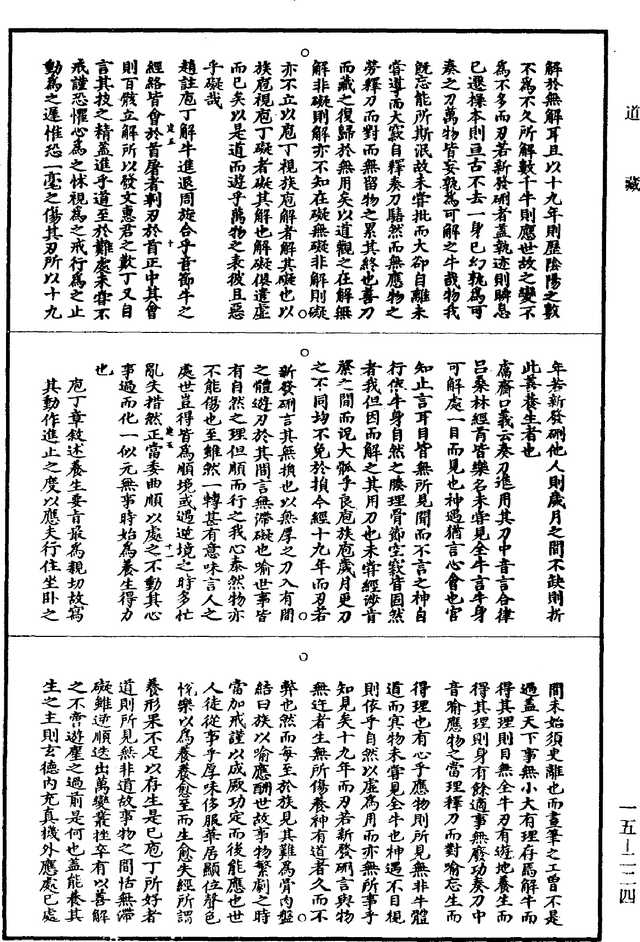 道藏
解於無解耳且以十九年則歷陰陽之數
不為不久所解數千牛則應世故之變不
為不多而刃若新發硎者蓋執迹則瞬息
已遷操本則亘古不去一身已幻孰為可
奏之刀萬物皆妄孰為可解之牛哉物我
既忘能所斯泯故未嘗批而大卻自離未
嘗導而大窾自釋奏刀騞然而無應物之
勞釋刀而對而無留物之累其終也善刀
而藏之復歸於無用矣以道觀之在解無
解非礙則解亦不知在礙無礙非解則礙
亦不立以庖丁視族庖解者解其礙也以
族庖視庖丁礙者礙其解也解礙俱遣虛
而已矣以是道而遊乎萬物之表彼且惡
乎礙哉
趙註庖丁解牛進退周旋合乎音節牛之
經絡皆會於首屠者剚刃於首正中其會
則百骸立解所以發文惠君之歎丁又自
言其技之精蓋進乎道至於難處未嘗不
戒謹恐懼心為之怵視為之戒行為之止
動為之遲惟恐一毫之傷其刃所以十九
年若新發硎他人則歲月之間不缺則折
此善養生者也
鬳齋口義云奏刀進用其刀中音言合律
呂桑林經首皆樂名未嘗見全牛言牛身
可解處一目而見也神遇猶言心會也官
知止言耳目皆無所見聞而不言之神自
行依牛身自然之腠理骨節空竅皆固然
者我但因而解之其用刀也未嘗經涉肯
綮之間而說大軱乎良庖族庖歲月更刀
之不同均不免於損今經十九年而刃若
新發硎言其無損也以無厚之刀入有間
之體遊刃於其間言無滯礙也喻世事皆
有自然之理但順而行之我心泰然物亦
不能傷也至雖然一轉甚有意味言人之
處世豈得皆為順境或遇逆境之時多忙
亂失措然正當委曲順以處之不動其心
事過而化一似元無事時始為養生得力
也
庖丁章敘述養生要旨最為親切故寫
其動作進止之度以應夫行住坐臥之
間未始須臾離也而畫筆之工曾不是
過蓋天下事無小大有理存焉解牛而
得其理則目無全牛刃有遊地養生而
得其理則身有餘適事無廢功奏刀中
音喻應物之當理釋刀而對喻忘生而
得理也有心乎應物則所見無非牛體
道而冥物未嘗見全牛也神遇不目視
則依乎自然以虛為用而亦無所事乎
知見矣十九年而刃若新發硎言與物
無迕者生無所傷養神有道者久而不
弊也然而每至於族見其難為骨肉盤
結曰族以喻應酬世故事物繁劇之時
當加戒謹以成厥功定而後能應也世
人徒從事乎厚味侈服華居顯位聲色
悅樂以為養養愈至而生愈失經所謂
養形果不足以存生是已庖丁所好者
道則所見無非道故事物之間恬無滯
礙雖逆順迭出萬變叢挫卒有以善解
之不啻遊塵之過前是何也蓋能養其
生之主則玄德內充真機外應處已處
一五—二二四